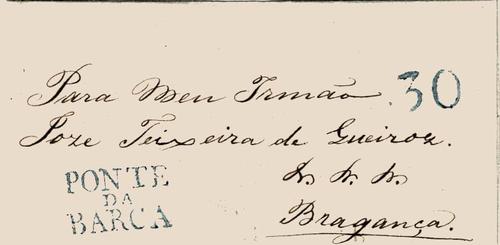 Para Meu Irmão 30
Joze Teixeira de Gueiroz.
PONTE
DA
BARCA
Bragança.